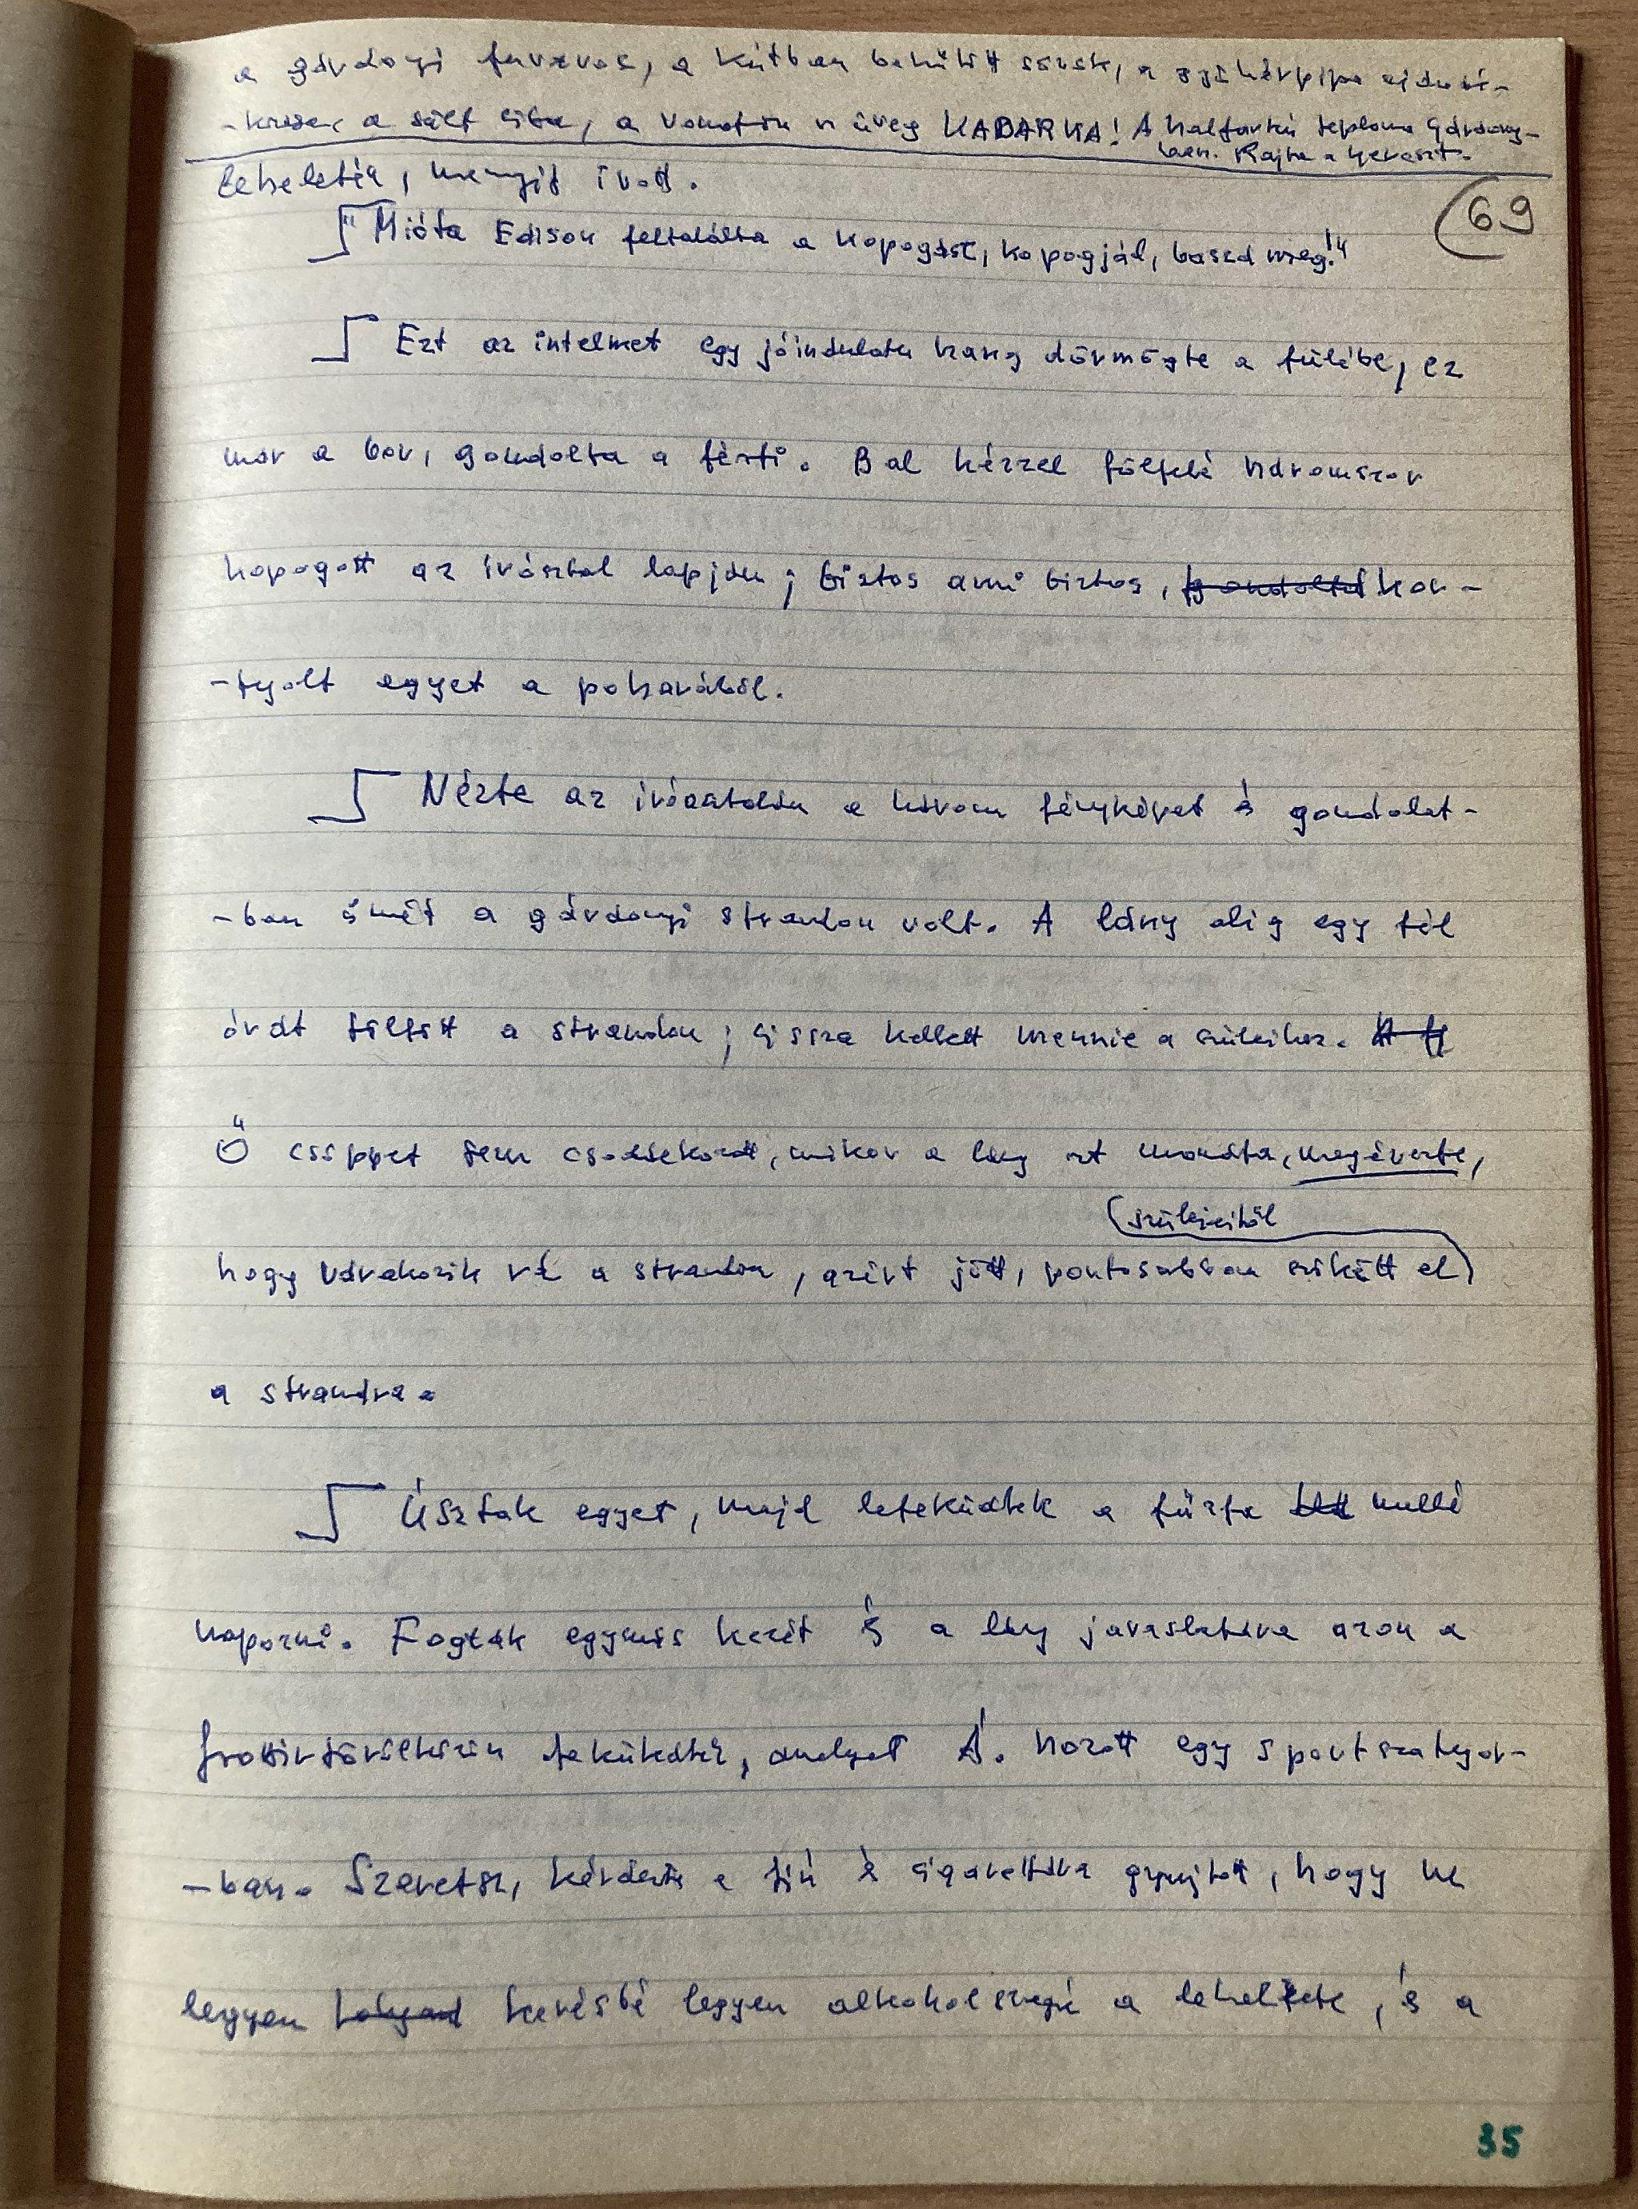 a gárdonyi fuvaros, a kútban behűtött sörök, a
a sült liba, a vonaton n üveg KADARKA! A kalfarkú templom Gárdony-
ban. Rajta a
leheletén, mennyit ivott.
69
"Mióta Edison feltalálta a kopogást, kopogjál, baszd meg!"
Ezt az intelmet egy jóindulatu hang dörmögte a fülébe, ez
már a bor, gondolta a férfi. Bal kézzel fölfelé háromszor
kopogott az íróasztal lapján; biztos ami biztos, gondolta kor-
-tyolt egyet a poharából.
Nézte az íróasztalán a három fényképet és gondolat-
-ban ismét a gárdonyi strandon volt. A lány alig egy fél
órát töltött a strandon; vissza kellett mennie a szüleihez.
Ő cseppet sem csodálkozott, mikor a lány ezt mondta, megéverte,
szüleitől
hogy várakozik rá a strandon, azért jött, pontosabban szökött el
a strandra.
Úsztak egyet, majd lefeküdtek a fűzfa mellé
napozni. Fogták egymás kezét és a lány javaslatára azon a
frottírtörölközőn feküdtek, amelyet Á. hozott egy sportszatyor-
-ban. Szeretsz, kérdezte a fiú és cigarettára gyujtott, hogy ne
legyen kevésbé legyen alkoholszagú a lehelete, és a
35